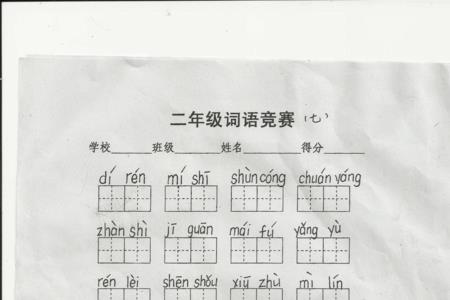 二年级词语竞赛（七）
学校______班级______姓名________得分______
dí rén mí shī shùn cóng chuán yáng
zhàn shì jī guān mái fú yǎng yù
rén lèi shēn shǒu xiū zhù mì lín